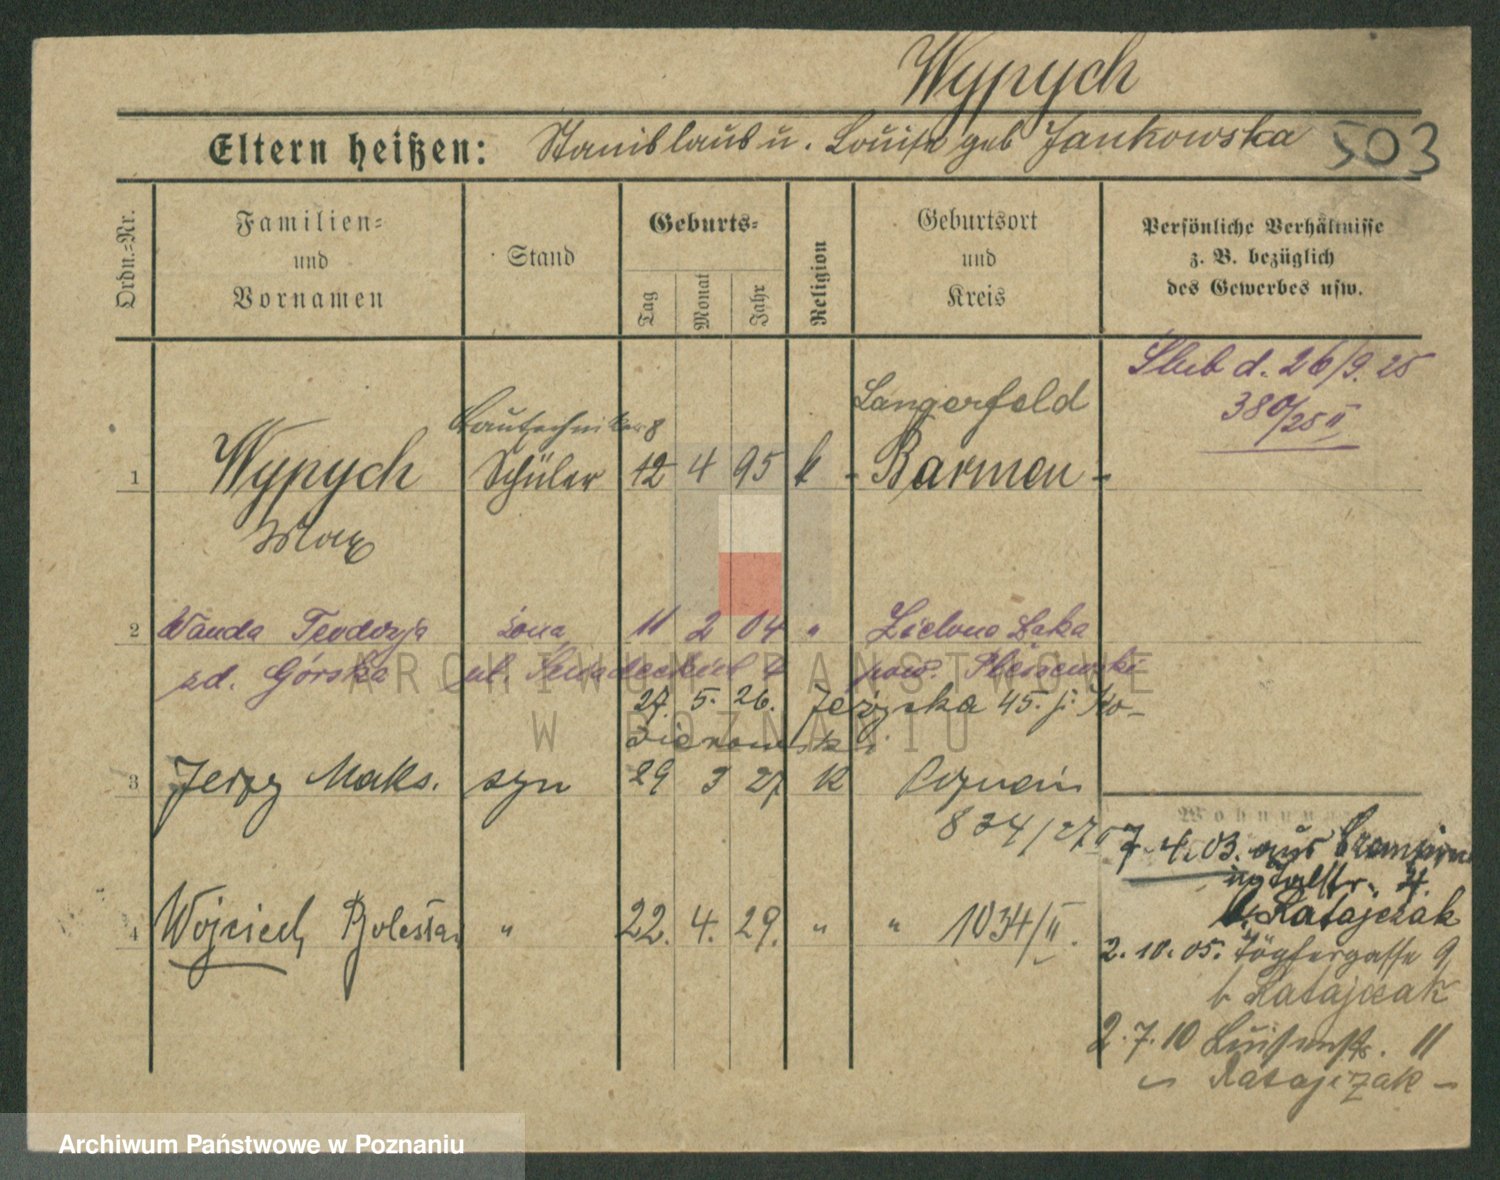 Wypych
Eltern heißen: Stanislaus u. Louise geb Jankowska 503
Ordn.=Nr.
Familien=
und
Vornamen
Stand
Geburts=
Tag
Monat
Jahr
Religion
Geburtsort
und
Kreis
Persönliche Verhältnisse
z. B. bezüglich
des Gewerbes usw.
Ślub d. 26/9. 25
380/25 II
Langerfeld
Bautechniker
1 Wypych Schüler 12 4 95 k - Barmen -
Max
2 Wanda Teodozja żona 11 2 04 " Zielona Łąka
zd. Górska ul. Śniadeckich pow. Pleszewski
27. 5. 26. Jeżycka 45. j.
3 Jerzy Maks. syn 29 3 27 k Poznań
834/27 II
4 Wojciech Bolesław " 22. 4. 29. " " 1034/II.
Wohnung
7. 4. 03. aus
4.
b. Ratajczak
2. 10. 05. Töpfergasse 9
b Ratajczak
2. 7. 10 Luisenstr. 11
Ratajczak
ARCHIWUM PAŃSTWOWE
W POZNANIU
Archiwum Państwowe w Poznaniu